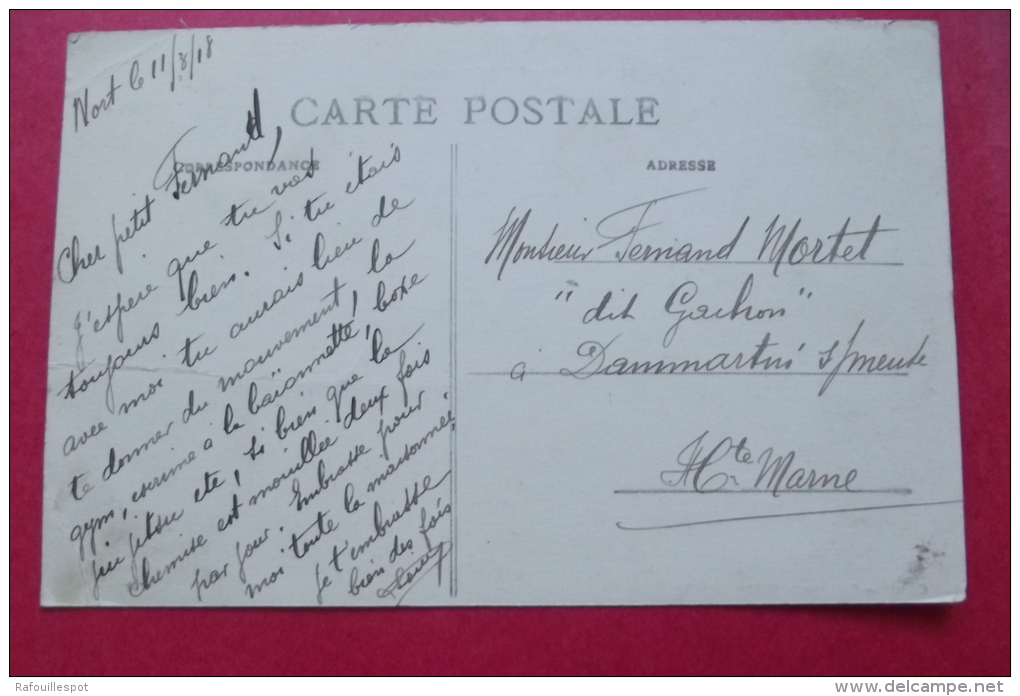 Niort le 11/8/18
CARTE POSTALE
CORRESPONDANCE
ADRESSE
Cher petit Fernand,
J'espère que tu vas
toujours bien. Si tu étais
avec moi tu aurais lieu de
te donner du mouvement, la
gym, escrime à la baïonnette, boxe
jiu jitsu etc, si bien que la
chemise est mouillée deux fois
par jour. Embrasse pour
moi toute la maisonnée
je t'embrasse
bien des fois
Monsieur Fernand Mortet
"dit Gachon"
à Dammartin s/meuse
Hte Marne
Rafouillespot
www.delcampe.net